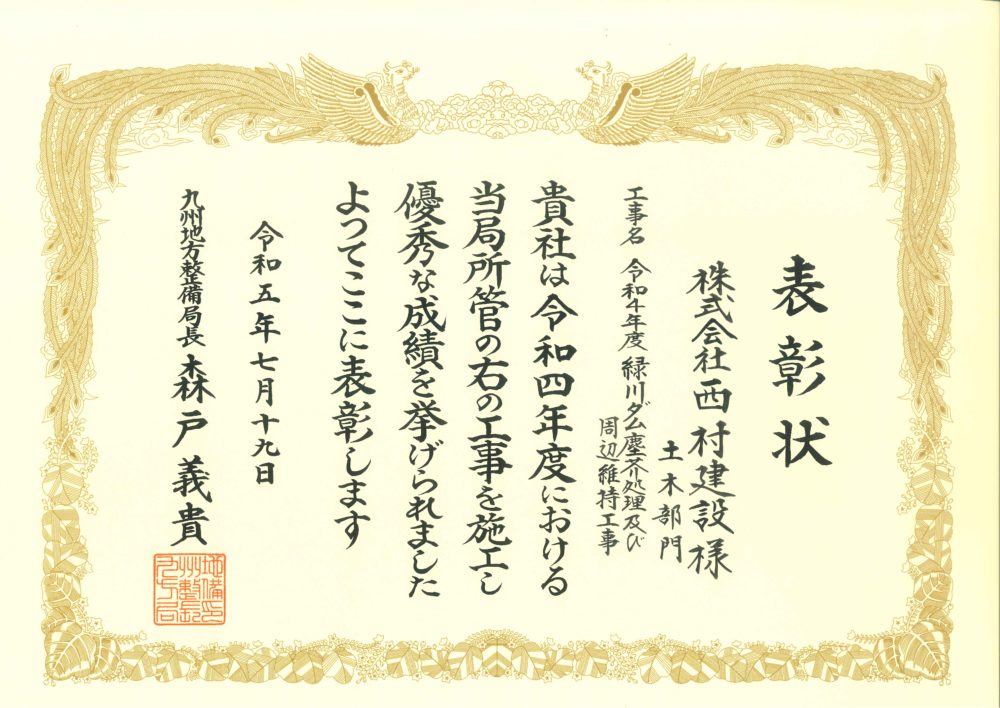 表彰状
株式会社 西村建設様
土木部門
工事名 令和4年度 緑川ダム塵芥処理及び
周辺維持工事
貴社は令和四年度における
当局所管の右の工事を施工し
優秀な成績を挙げられました
よってここに表彰します
令和五年七月十九日
九州地方整備局長 森戸義貴